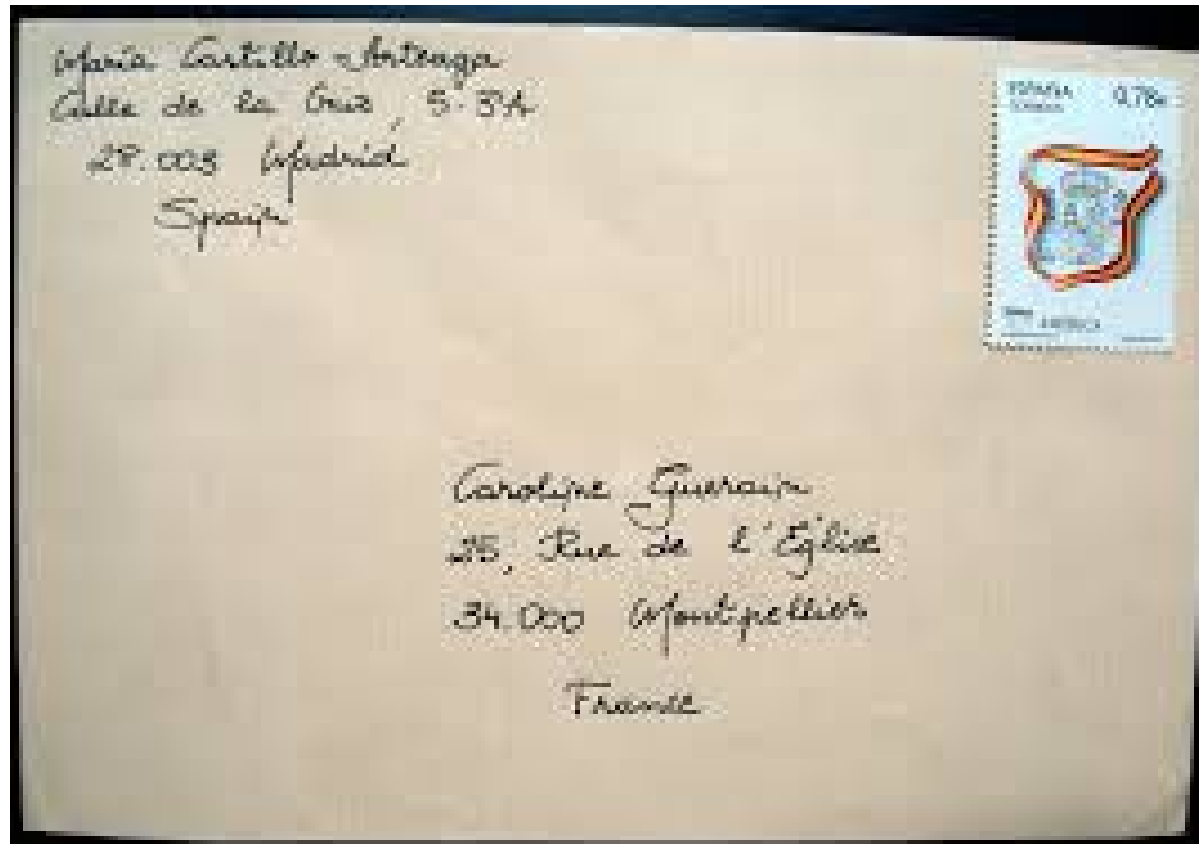 María Castillo-Arteaga
Calle de la Cruz, 5-3ºA
28.003 Madrid
Spain
ESPAÑA 0,78€
CORREOS
AMERICA
Caroline Guerain
25, Rue de l'Eglise
34.000 Montpellier
France